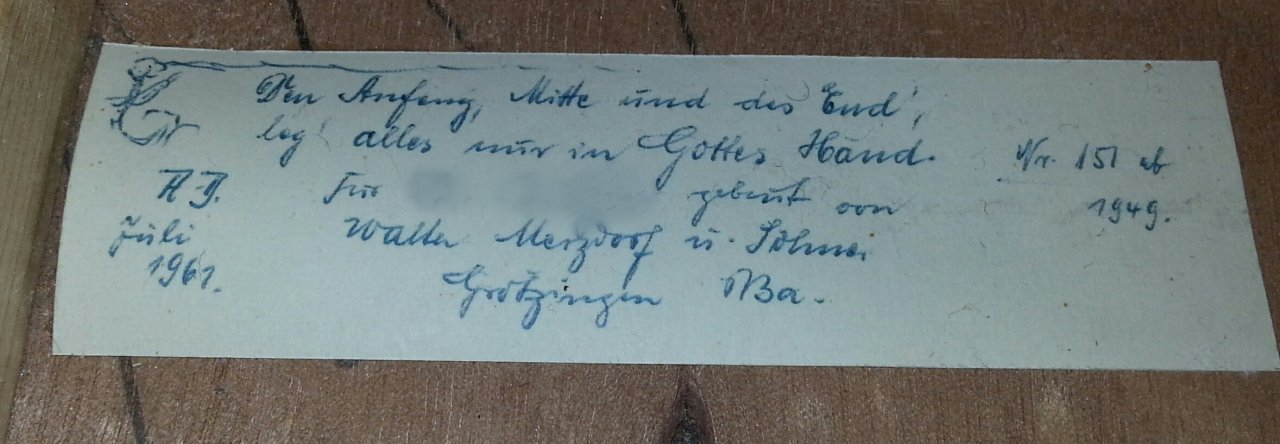 Den Anfang, Mitte und das End',
leg' alles nur in Gottes Händ. Nr. 151 ab
1949.
A.D. Für gebaut von
Juli Walter Merzdorf u. Söhne
1961. Grötzingen /Ba.